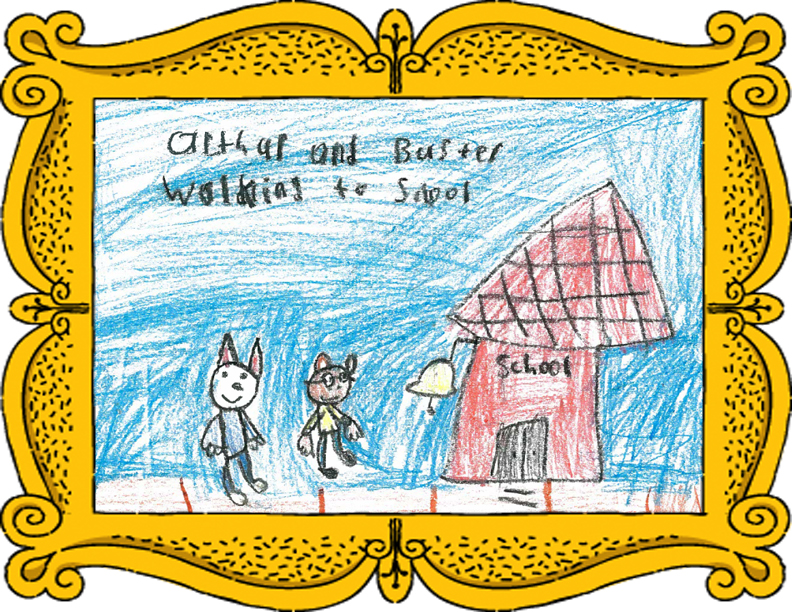 Arthur and Buster
Walking to School
School